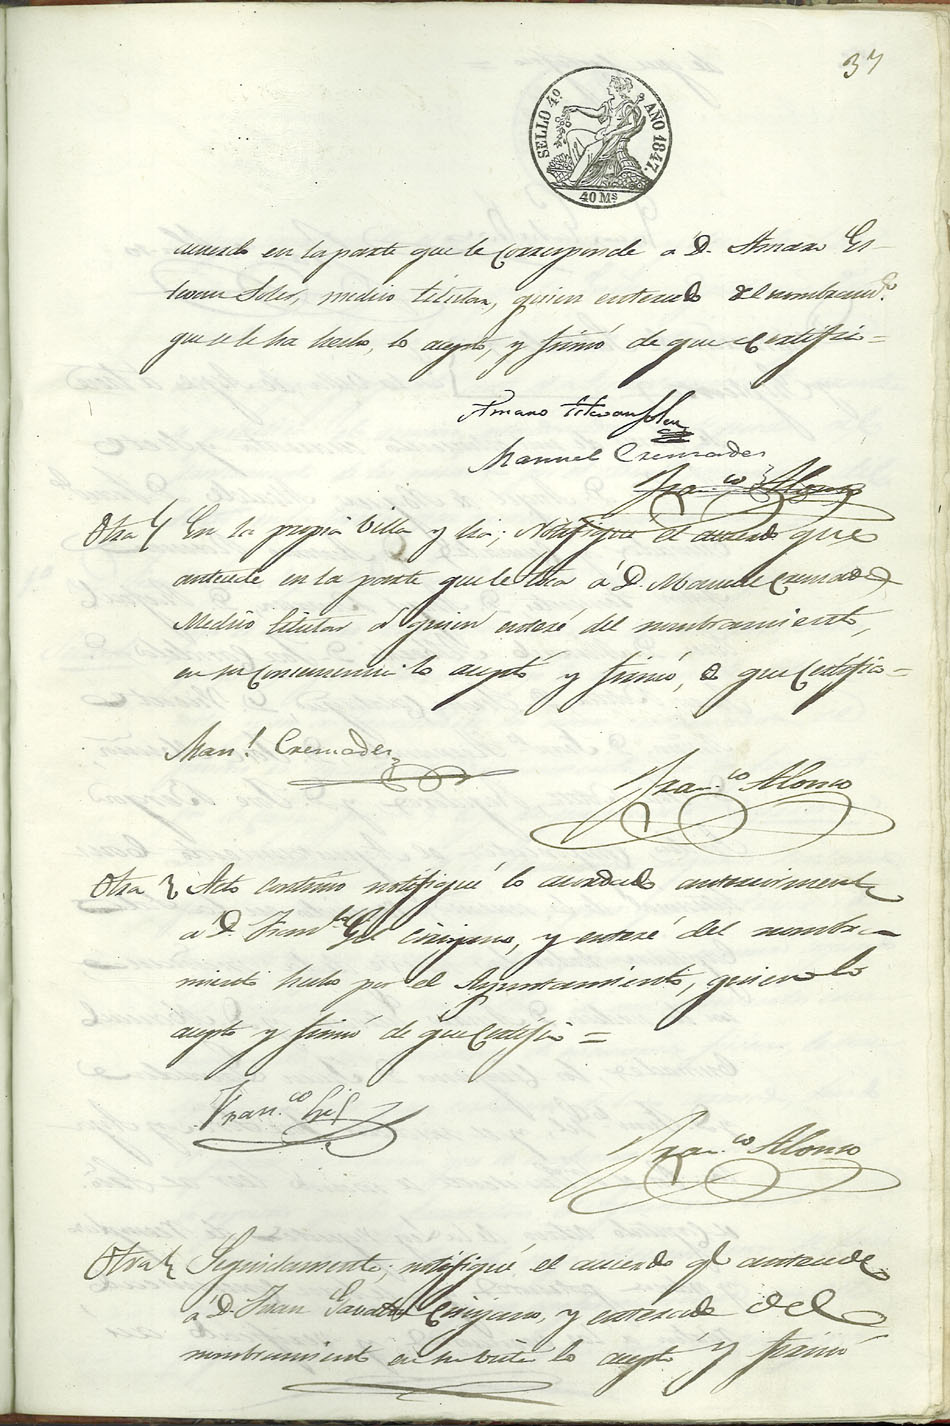 37
SELLO 4º AÑO 1847.
40 Ms
acuerdo en la parte que le corresponde á D. Amaro Es-
tevan Soler, medico titular, quien enterado del nombramto.
que se le ha hecho, lo aceptó, y firmó de que certifico =
Amaro Estevan Soler
Manuel Cremades
Fran.co Alonso
Otra En la propia Villa y dia; Notifique el acuerdo que
antecede en la parte que le toca á D. Manuel Cremades
Medico titular á quien enteré del nombramiento,
en su consecuencia lo aceptó y firmó, de que Certifico =
Man.l Cremades
Fran.co Alonso
Otra Acto continuo notifiqué lo acordado anteriormente
á D. Fran.co Gil Cirujano, y enteré del nombra-
miento hecho por el Ayuntamiento, quien lo
acepto y firmó de que Certifico =
Fran.co Gil
Fran.co Alonso
Otra Seguidamente; notifiqué el acuerdo q.e antecede
á D. Juan Cirujano, y enterado del
nombramiento en su vista lo aceptó y firmó